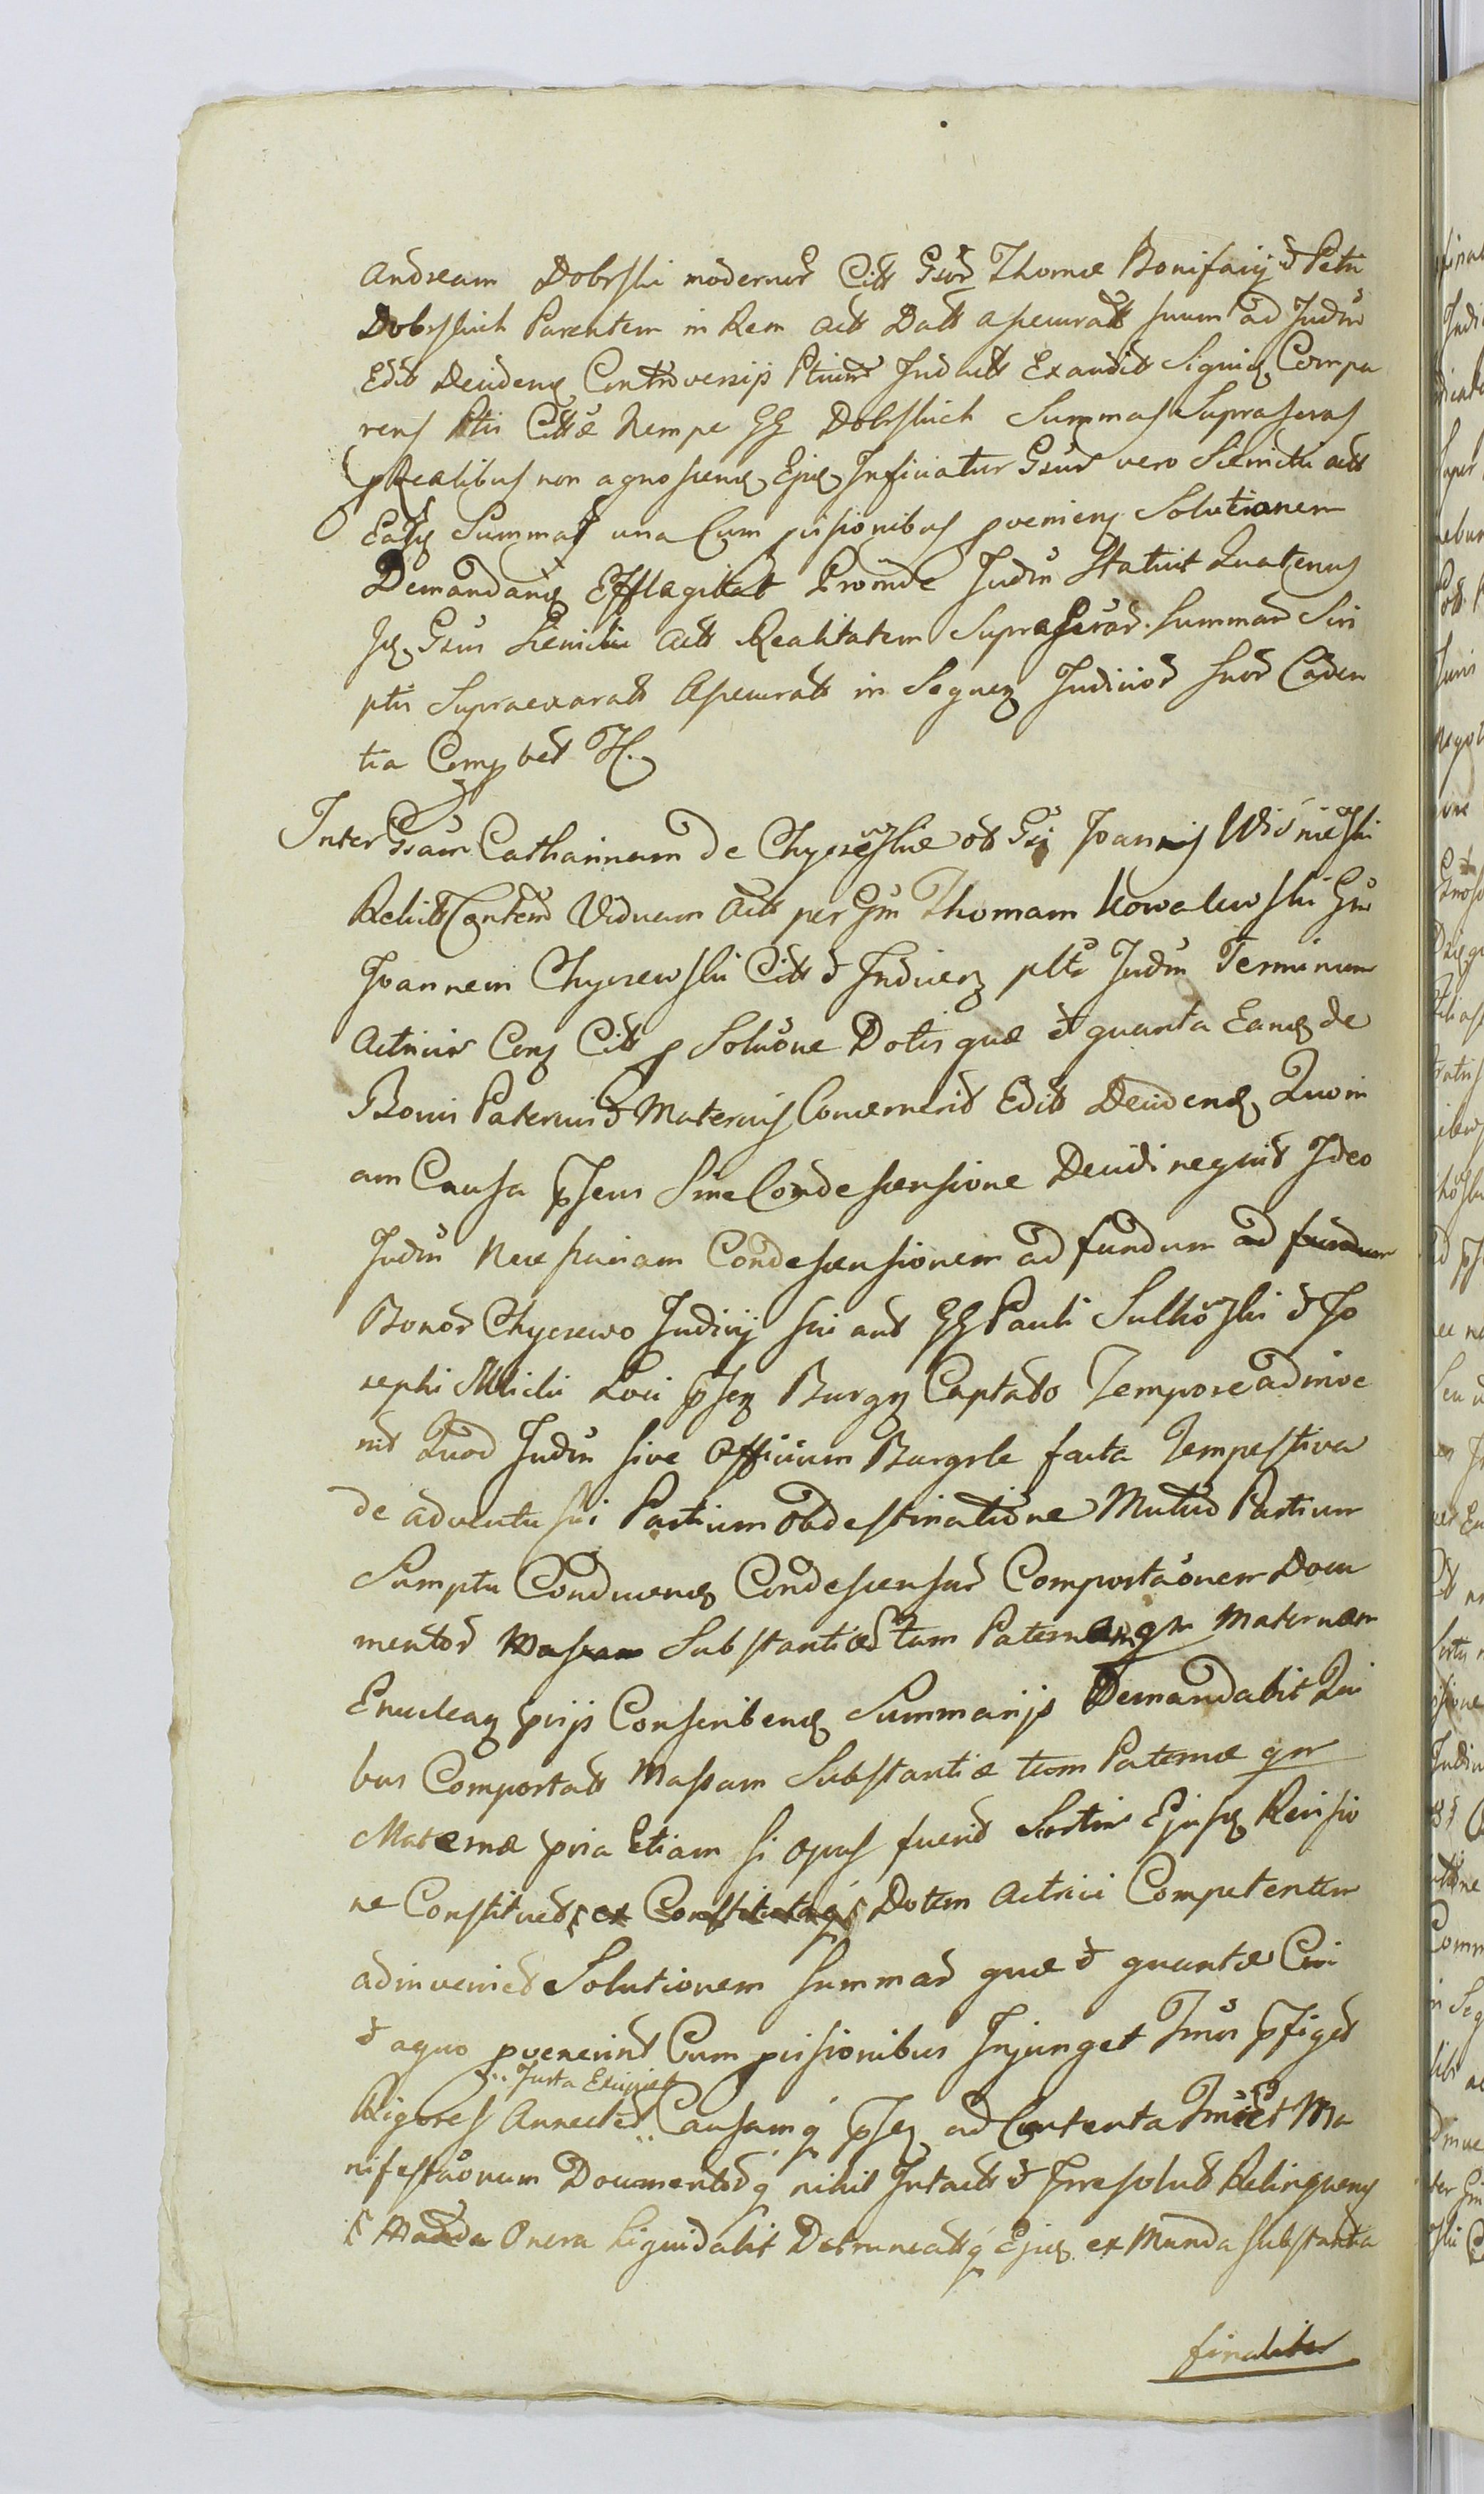 Andream Dobrski modernor Citt Gsor Thomæ Bonifacij & Petri
Dobrskich Parentem in Rem Act Datt assecuratt suum ad Judm
Edit Decidend Controversijs Ptium Inductt Exaudit Signid Compa
rens Citttæ Nempe GG Dobrskich Summas Suprascras
pro Realibus non agnoscend Ejus Inficiatur Gsus vero Siemicki act
Easd Summas una Cum pvisionibus pveniens Solutionem
Demandand Efflagitat Proinde Judm Statuit Quatenus
Gsus Siemicki Act Realitatem Suprascrar. Summar Scri
ptis Supraexaratt Assecuratt in Sequen Judicior suor Caden
tia Compbet H.
Inter Gsam Catharinam de Chyczewskie ol Gsi Joannis Wisniewski
Relict Contem Viduam Act per Gm Thomam Kowalewski Gm
Joannem Chyczewski Citt & Inducen pltr Judm Terminum
Actricis Cens Citt p Soluone Dotis quæ & quanta Eand de
Bonis Paternis & Maternis Concernerit Edit Decidend Quon
am Causa psens Sine Condescensione Decidi nequit Ideo
Judm Necessariam Condescensionem ad fundum ad fundum
Bonor Chyczewo Judicij sui aut GG Pauli Sulkowski & Jo
sephi Milicki Loci psen Burgn Captato Tempore adinve
nit Quod Judm sive Officium Burgrle facta Tempestiva
de adventu sui Partium Obdestinatione Mutuo Partium
Sumptu Conducend Condescensur Comportaonem Docu
mentor Massam Substantiæ Tum Paternæ qm Maternæm
Enuclean pvijs Conscribend Summarijs Demandabit Qui
bus Comportatt Massam Substantiæ tum Paternæ qm
Maternæ pvia Etiam si opus fuerit Sortis Ejusd Revisio
ne Constituet et Constitutaq Dotem Actrici Competentem
adinveniet Solutionem summar quæ & quantæ Cui
& a quo pvenerint Cum pvisionibus Injunget Tmos pfiget
Justa Exiget
Rigores Annectet Causamq psen ad Contenta Tmi et Ma
nifestaonum Documentorq nihil Intactt & Irresolut Relinquens
Munda Onera Liquidabit Detruncattq Ejus ex Munda substantia
finaliter